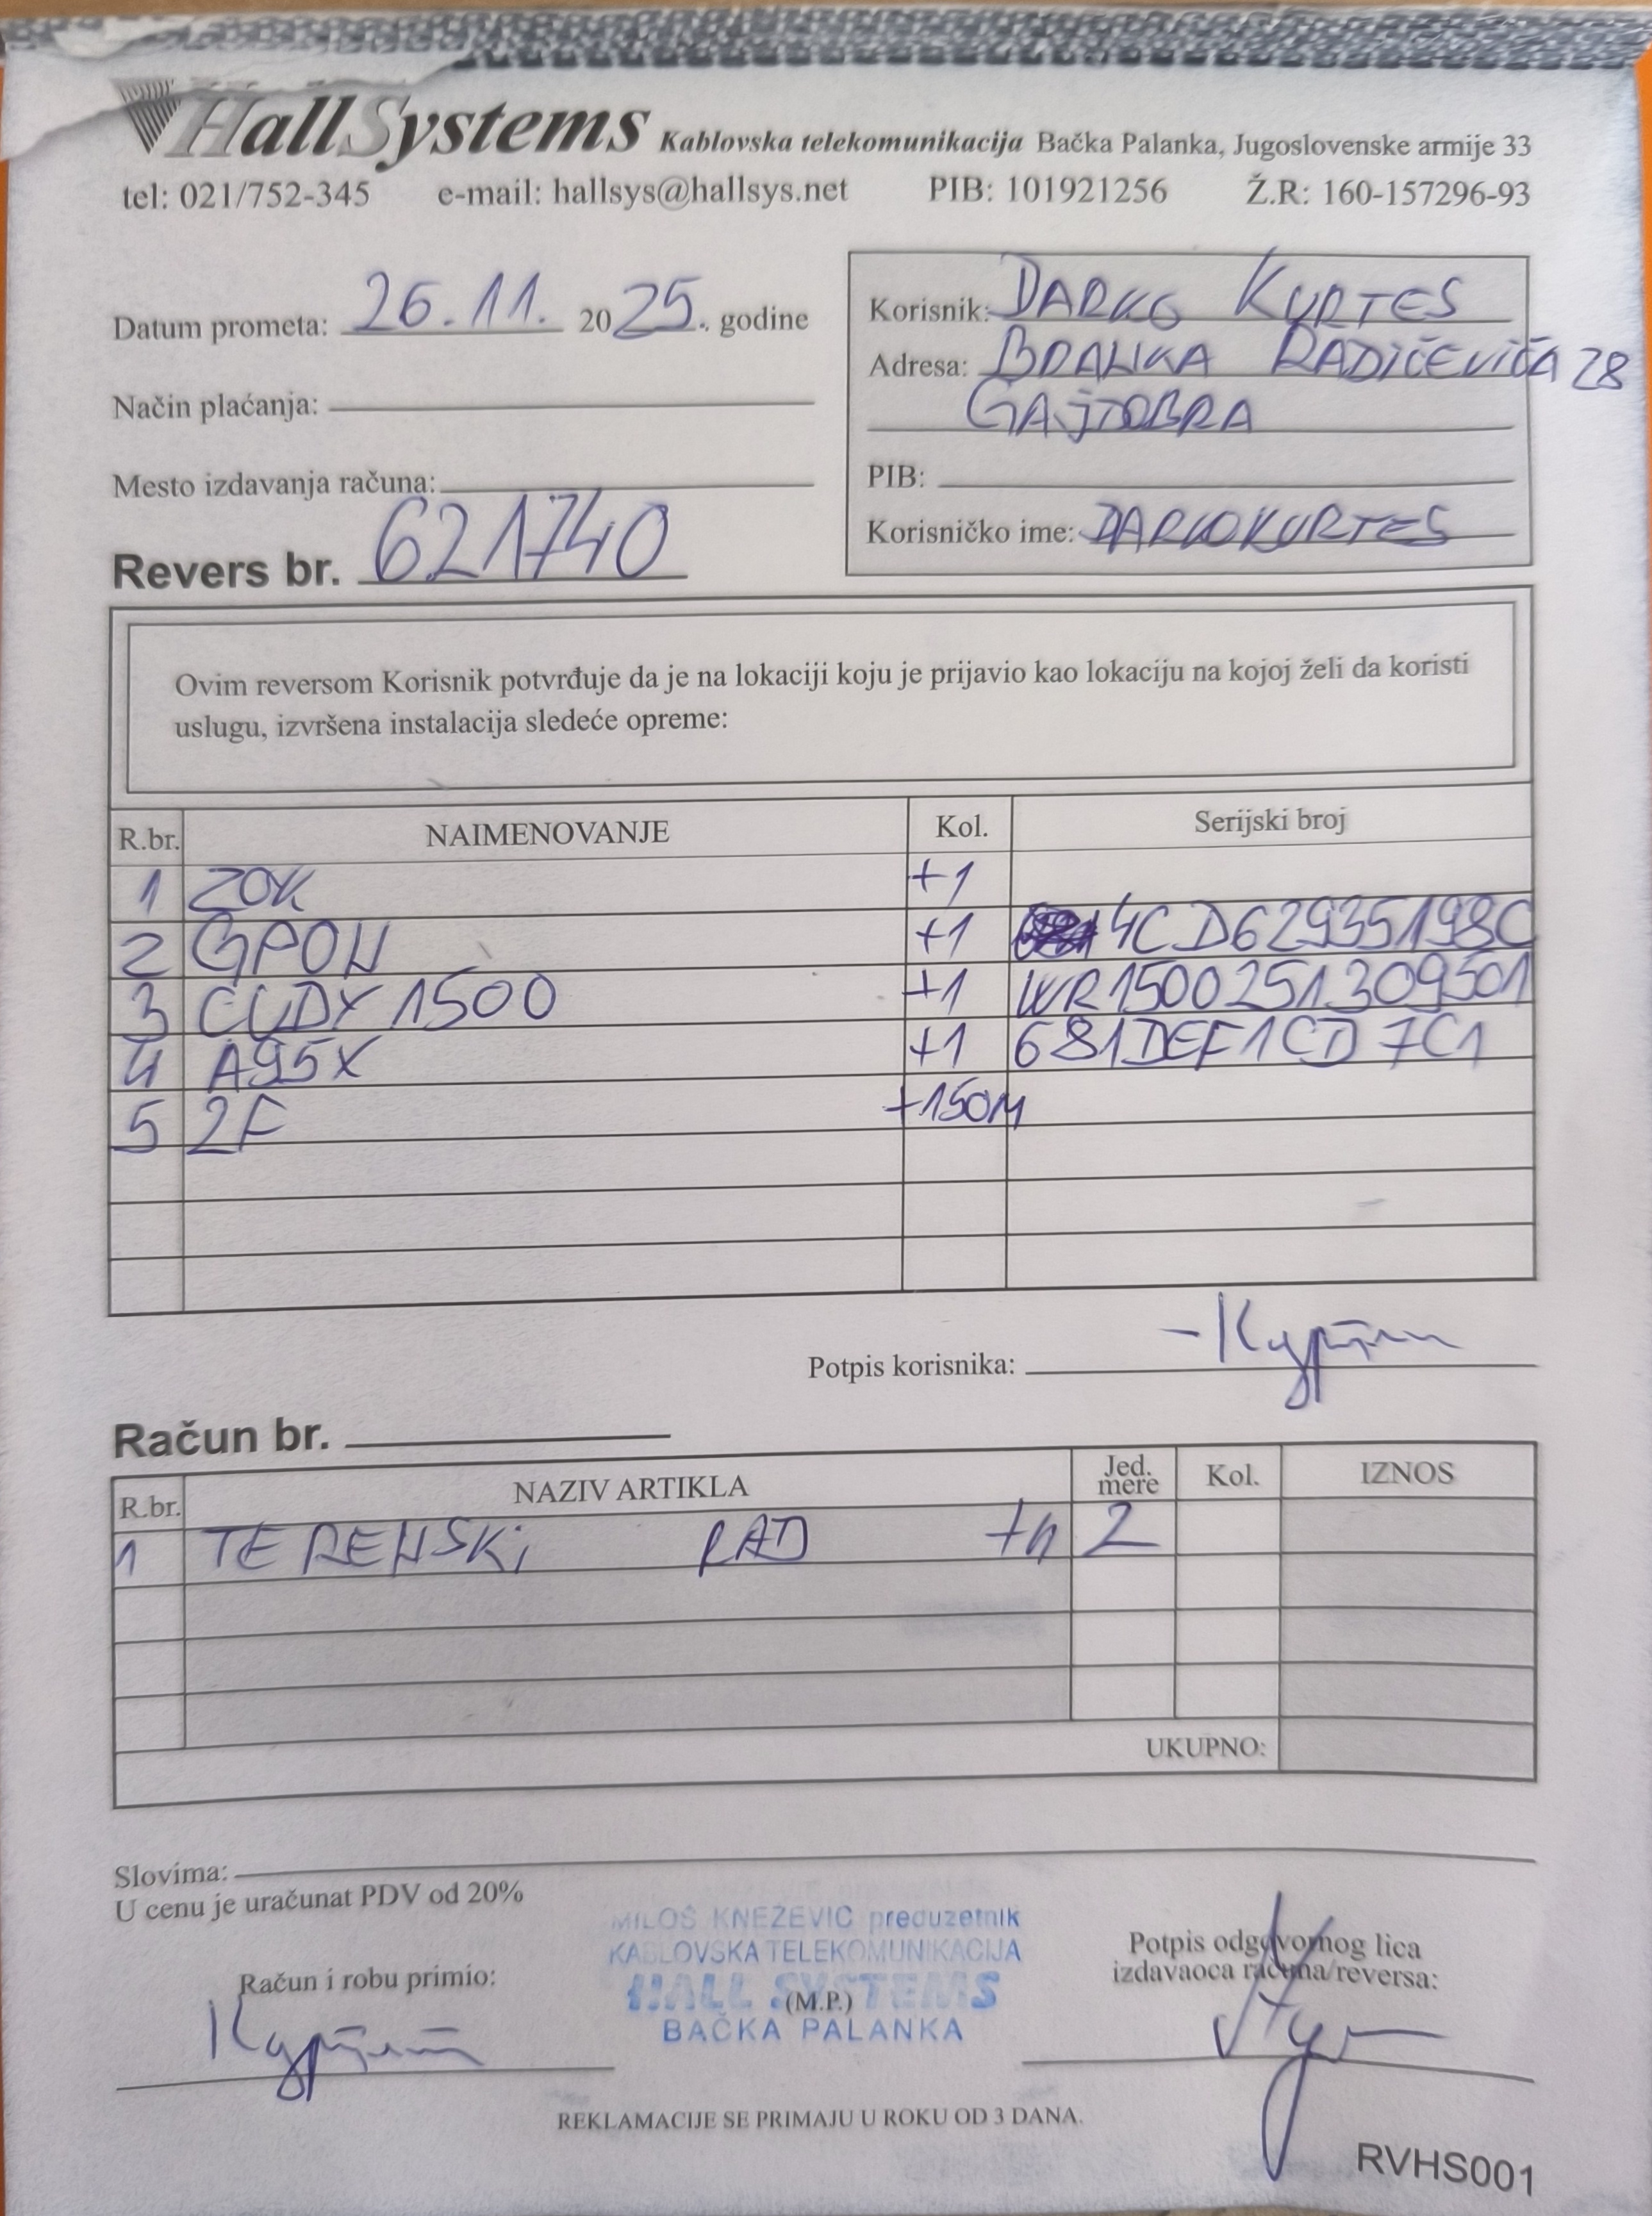 HallSystems Kablovska telekomunikacija Bačka Palanka, Jugoslovenske armije 33
tel: 021/752-345 e-mail: hallsys@hallsys.net PIB: 101921256 Ž.R: 160-157296-93
Datum prometa: 26.11. 2025. godine
Način plaćanja:
Mesto izdavanja računa:
Revers br. 621740
Korisnik: DARKO KURTES
Adresa: BRANKA RADIČEVIĆA 28
GAJDOBRA
PIB:
Korisničko ime: DARKOKURTES
Ovim reversom Korisnik potvrđuje da je na lokaciji koju je prijavio kao lokaciju na kojoj želi da koristi
uslugu, izvršena instalacija sledeće opreme:
R.br. NAIMENOVANJE Kol. Serijski broj
1 ZOK +1
2 GPON +1 4CD62935198C
3 CUDY 1500 +1 WR1500251309501
4 A95X +1 681DEF1CD7C1
5 2F +150M
Potpis korisnika:
Račun br.
R.br. NAZIV ARTIKLA Jed. mere Kol. IZNOS
1 TERENSKI RAD +h 2
UKUPNO:
Slovima:
U cenu je uračunat PDV od 20%
MILOŠ KNEŽEVIĆ preduzetnik
KABLOVSKA TELEKOMUNIKACIJA
HALL SYSTEMS
(M.P.)
BAČKA PALANKA
Račun i robu primio:
Potpis odgovornog lica
izdavaoca računa/reversa:
REKLAMACIJE SE PRIMAJU U ROKU OD 3 DANA.
RVHS001